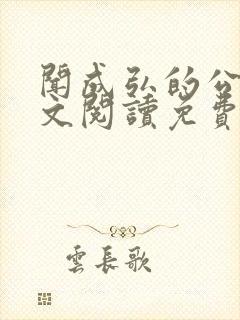 聞成弘的公
文閱讀免費
雲長歌